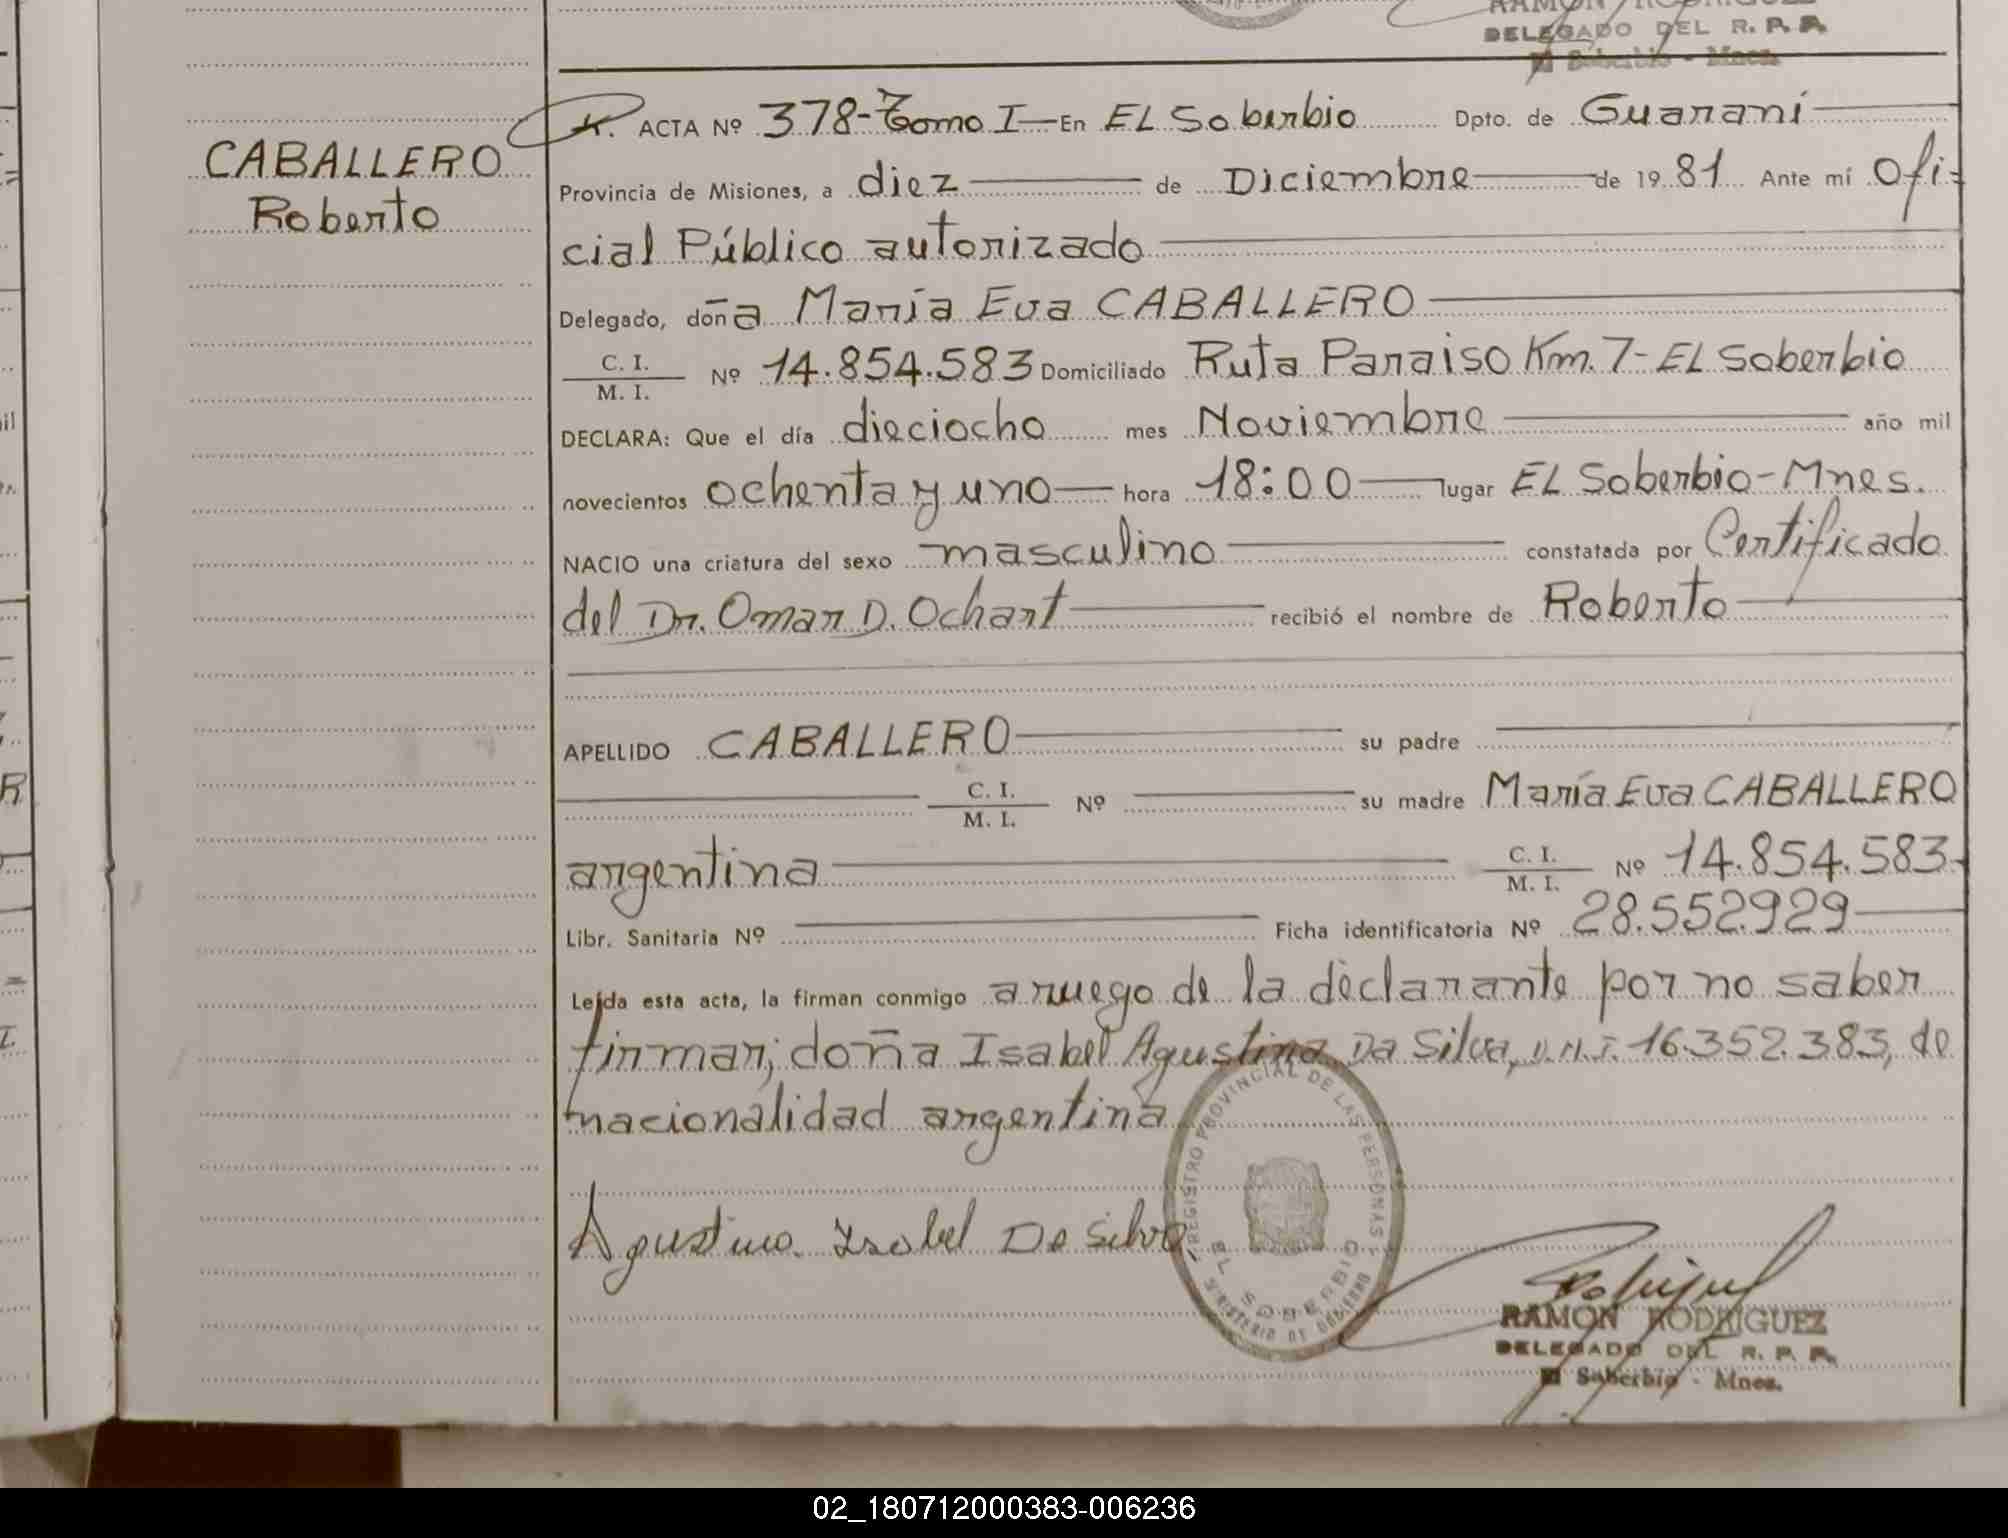 RAMON RODRIGUEZ
DELEGADO DEL R. P. P.
El Soberbio - Mnes.
CABALLERO
Roberto
ACTA Nº 378-Tomo I - En EL Soberbio Dpto. de Guaraní
Provincia de Misiones, a diez de Diciembre de 1981 Ante mí Ofi-
cial Público autorizado
Delegado, doña María Eva CABALLERO
C. I. / M. I. Nº 14.854.583 Domiciliado Ruta Paraiso Km. 7- EL Soberbio
DECLARA: Que el día dieciocho mes Noviembre año mil
novecientos ochenta y uno hora 18:00 lugar EL Soberbio-Mnes.
NACIO una criatura del sexo masculino constatada por Certificado
del Dr. Omar D. Ochart recibió el nombre de Roberto
APELLIDO CABALLERO su padre
C. I. / M. I. Nº su madre María Eva CABALLERO
argentina C. I. / M. I. Nº 14.854.583
Libr. Sanitaria Nº Ficha identificatoria Nº 28.552.929
Leída esta acta, la firman conmigo a ruego de la declarante por no saber
firmar; doña Isabel Agustina Da Silva, D.N.I. 16.352.383, de
nacionalidad argentina
Agustina Isabel Da Silva
REGISTRO PROVINCIAL DE LAS PERSONAS
EL SOBERBIO
MINISTERIO DE GOBIERNO
RAMON RODRIGUEZ
DELEGADO DEL R. P. P.
El Soberbio - Mnes.
02_180712000383-006236